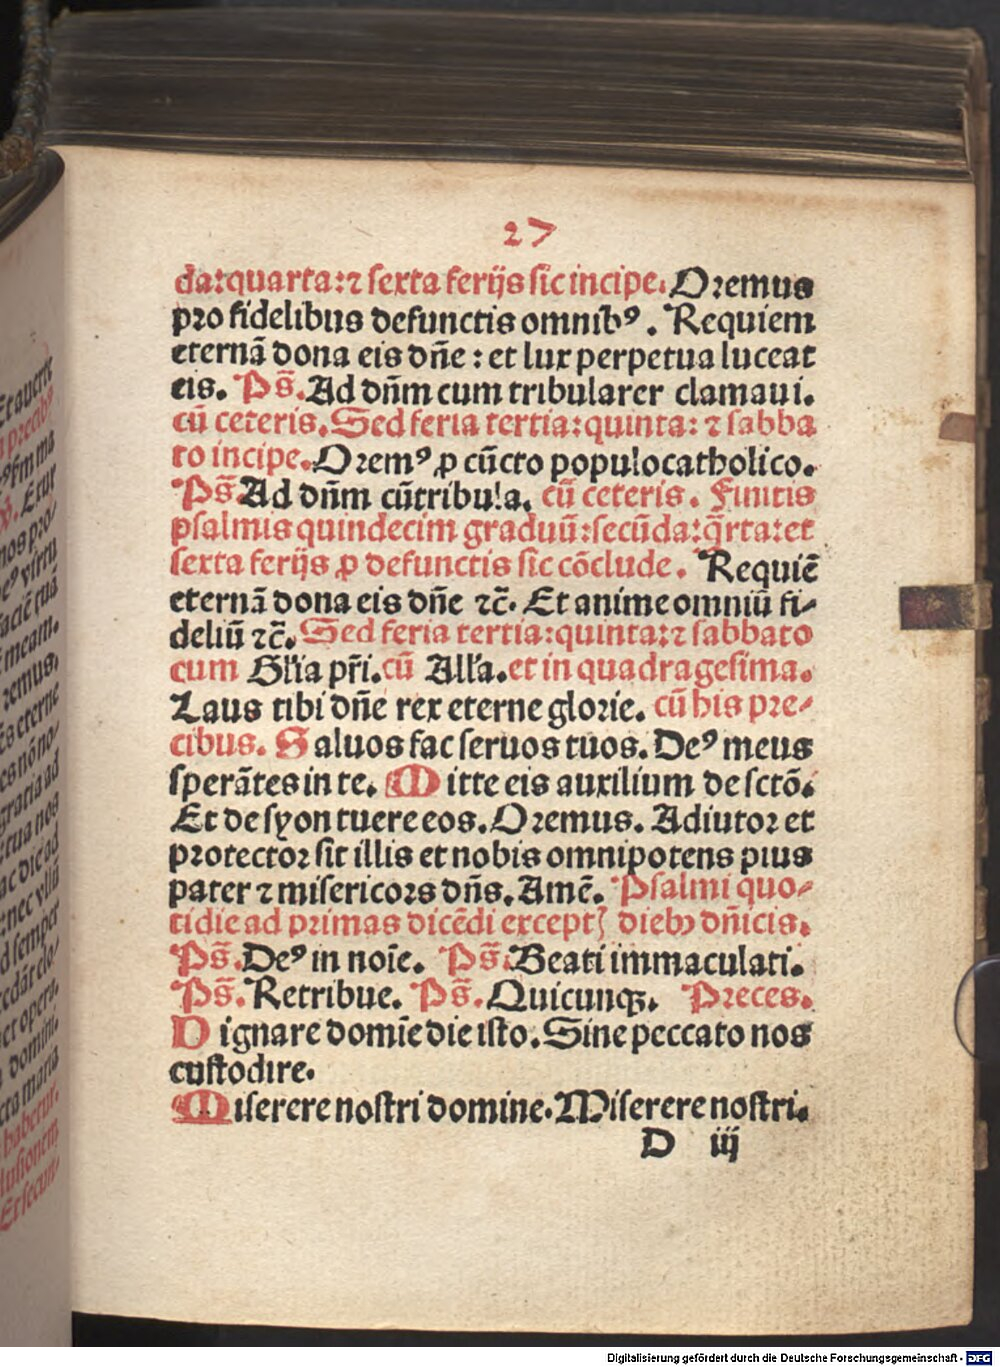 27
da:quarta:⁊ sexta ferijs sic incipe. Oremus
pro fidelibus defunctis omnibꝰ. Requiem
eternā dona eis dn̄e : et lux perpetua luceat
eis. Ps̄. Ad dn̄m cum tribularer clamaui.
cū ceteris. Sed feria tertia:quinta: ⁊ sabba
to incipe. Oremꝰ ꝓ cūcto populo catholico.
Ps̄. Ad dn̄m cū tribula. cū ceteris. Finitis
psalmis quindecim graduū:secūda:q̄rta:et
sexta ferijs ꝓ defunctis sic cōclude. Requiē
eternā dona eis dn̄e ⁊c̄. Et anime omniū fi-
deliū ⁊c̄. Sed feria tertia:quinta:⁊ sabbato
cum Gl'ia pr̄i. cū All'a. et in quadragesima.
Laus tibi dn̄e rex eterne glorie. cū his pre-
cibus. Saluos fac seruos tuos. Deꝰ meus
sperātes in te. Mitte eis auxilium de sctō.
Et de syon tuere eos. Oremus. Adiutor et
protector sit illis et nobis omnipotens pius
pater ⁊ misericors dn̄s. Amē. Psalmi quo-
tidie ad primas dicēdi except' dieb' dn̄icis.
Ps̄. Deꝰ in noīe. Ps̄. Beati immaculati.
Ps̄. Retribue. Ps̄. Quicunqꝫ. Preces.
Dignare domīe die isto. Sine peccato nos
custodire.
Miserere nostri domine. Miserere nostri.
D iij
Et auerte
precibꝰ
Etur
nos pro-
virtu
faciē tuā
meam.
remus.
eterne
gratia ad
tua nos
ac die ad
nec vllū
semper
opera.
domini.
maria
habetur.
Et secun-
Digitalisierung gefördert durch die Deutsche Forschungsgemeinschaft - DFG